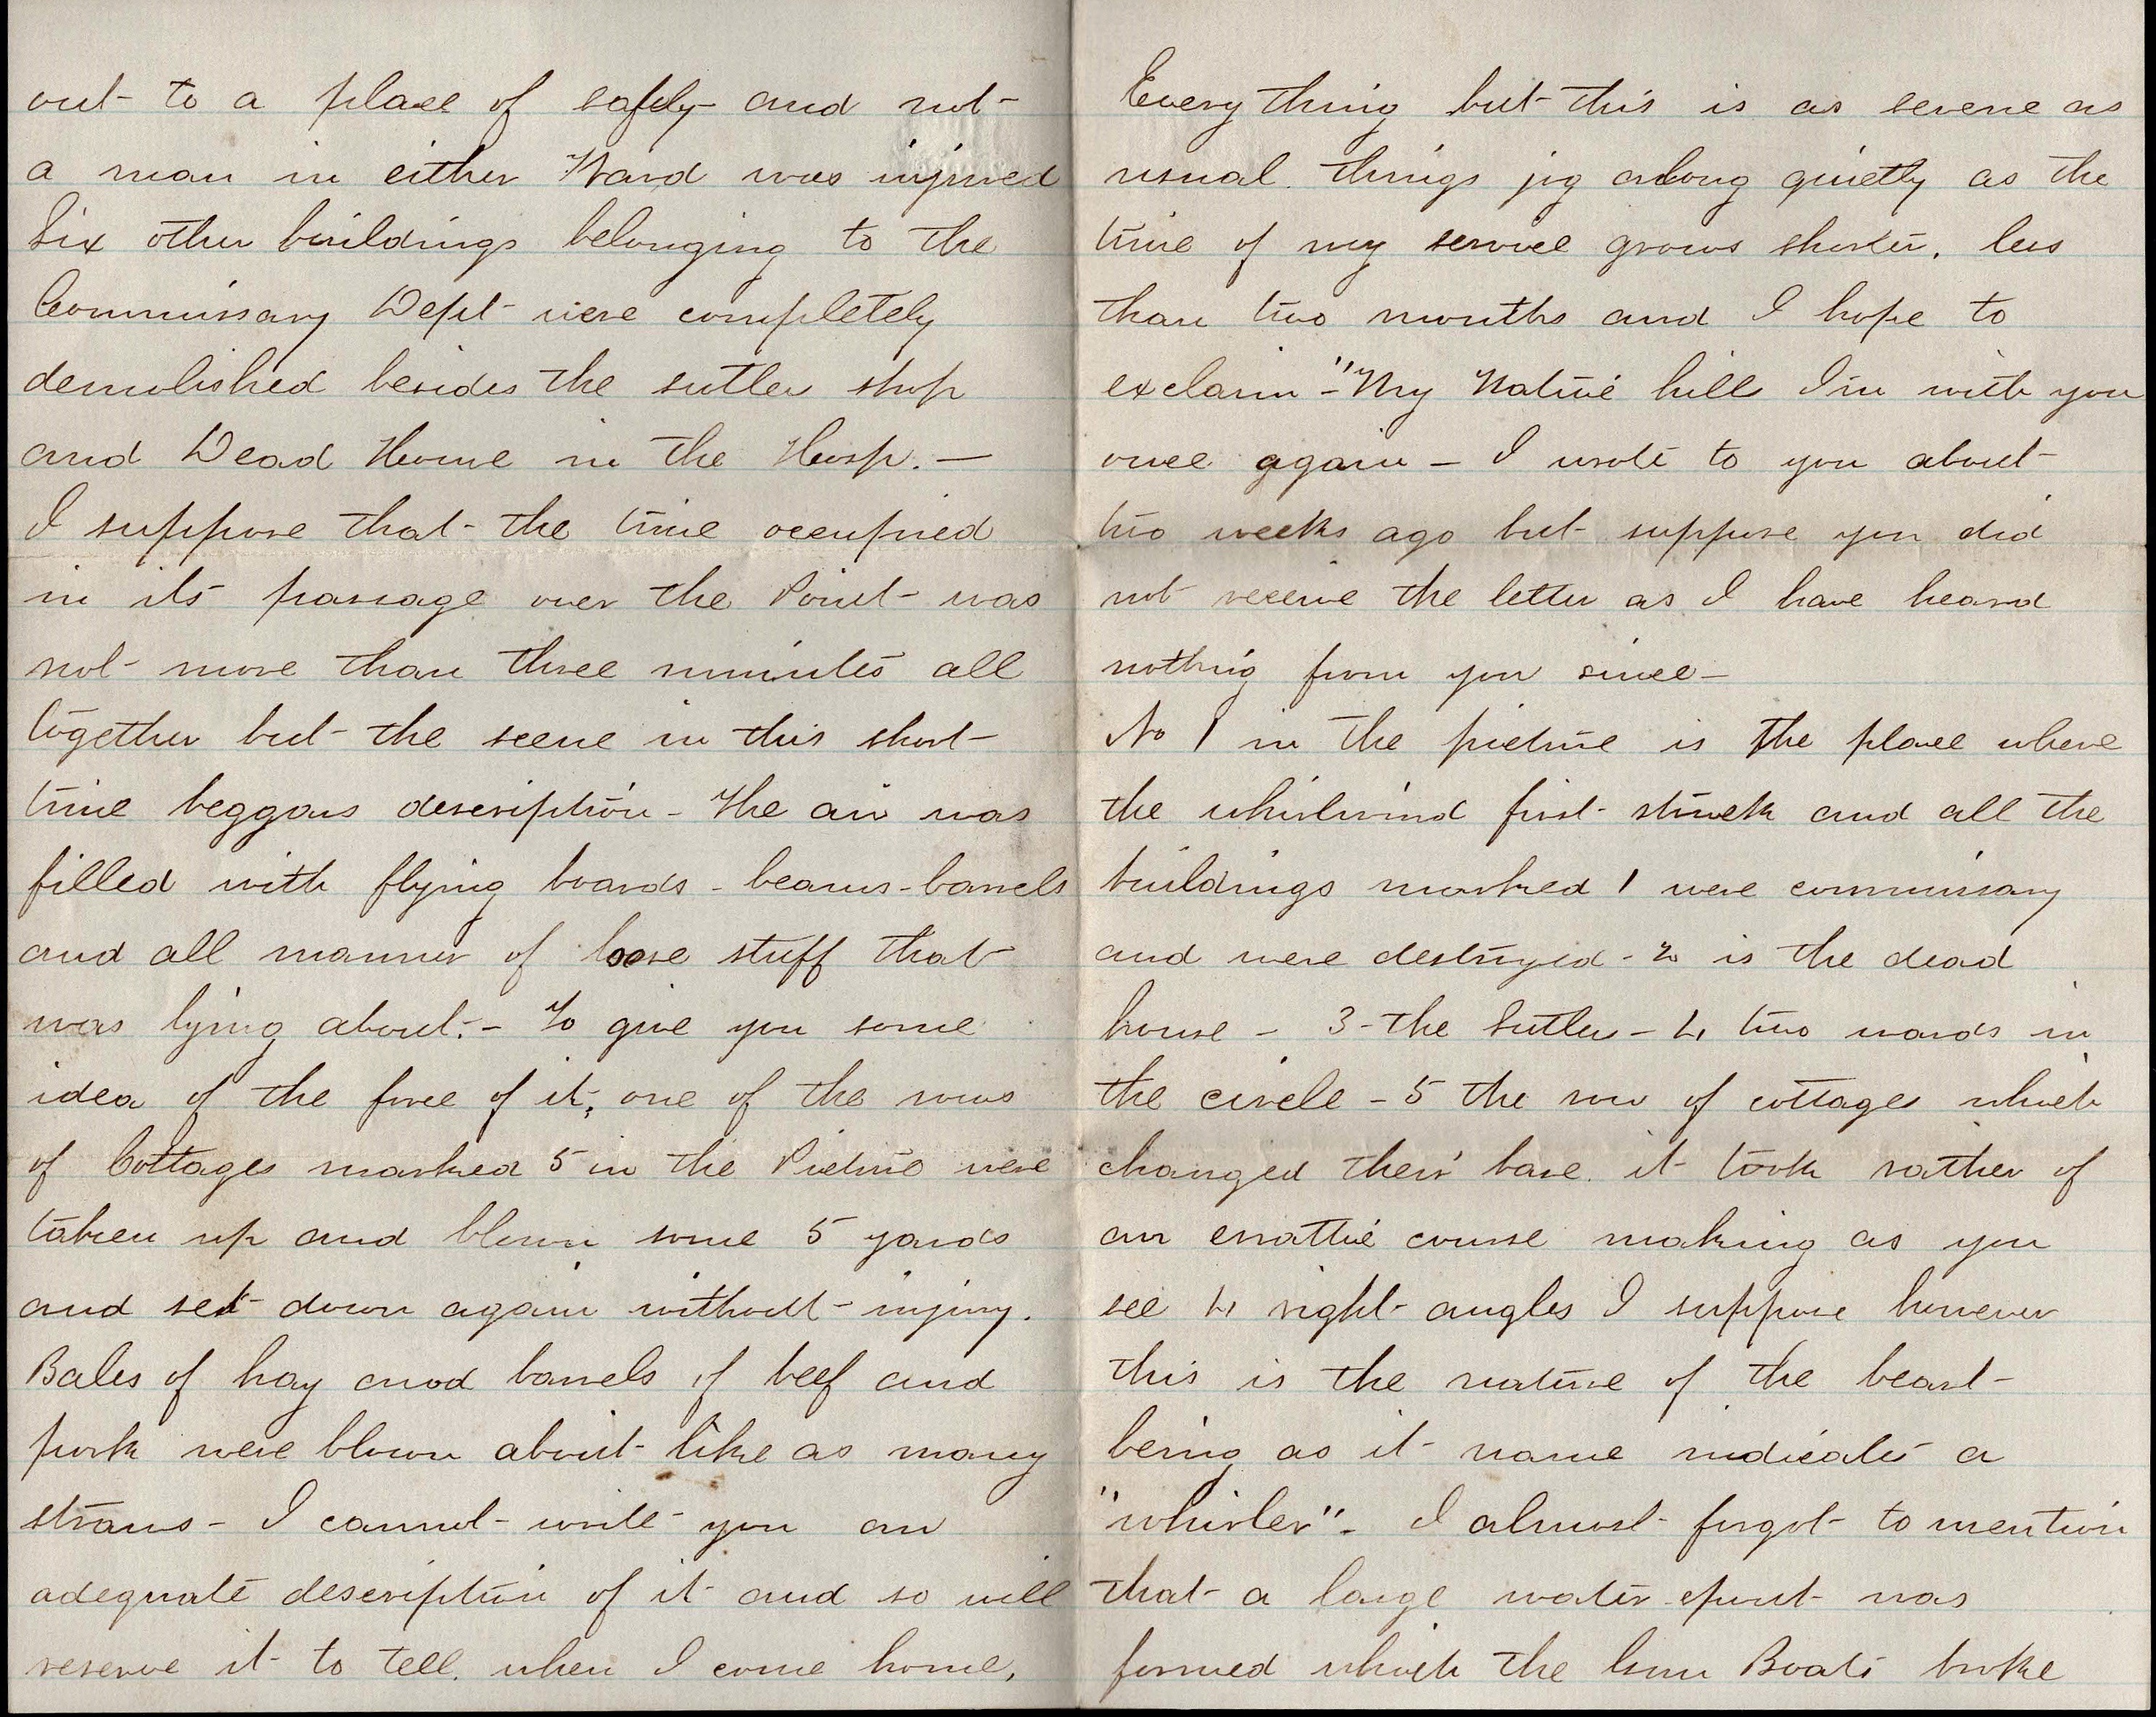 out to a place of safety and not
a man in either Ward was injured
Six other buildings belonging to the
Commissary Dept were completely
demolished besides the sutler shop
and Dead House in the Hosp. —
I suppose that the time occupied
in its passage over the Point was
not more than three minutes all
together but the scene in this short
time beggars description - The air was
filled with flying boards - beams - barrels
and all manner of loose stuff that
was lying about. - To give you some
idea of the force of it, one of the rows
of Cottages marked 5 in the Picture were
taken up and blown some 5 yards
and set down again without injury.
Bales of hay and barrels of beef and
pork were blown about like as many
straws - I cannot write you an
adequate description of it and so will
reserve it to tell when I come home.
Every thing but this is as serene as
usual. things jog along quietly as the
time of my service grows shorter. less
than two months and I hope to
exclaim - "My Native hills I'm with you
once again - I wrote to you about
two weeks ago but suppose you did
not receive the letter as I have heard
nothing from you since -
No 1 in the picture is the place where
the whirlwind first struck and all the
buildings marked 1 were commissary
and were destroyed - 2 is the dead
house - 3 - the Sutler - 4 two wards in
the circle - 5 the row of cottages which
changed their base. it took rather of
an erratic course making as you
see 4 right angles I suppose however
this is the nature of the beast -
being as it name indicates a
"whirler". I almost forgot to mention
that a large water spout was
formed which the Gun Boats broke